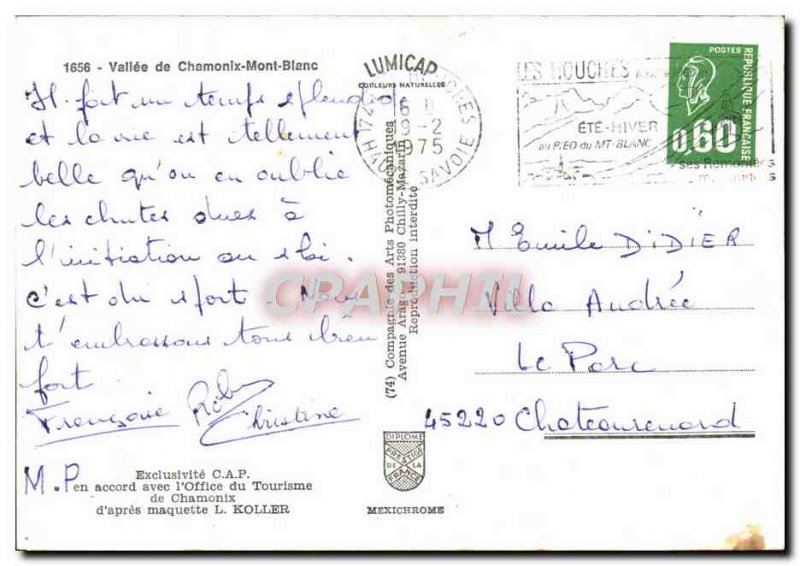 1656 - Vallée de Chamonix-Mont-Blanc
Il fait un temps splendide
et la vie est tellement
belle qu'on en oublie
les chutes dues à
l'initiation au ski.
c'est du sport Nous
t'embrassons tous bien
fort
Françoise Christine
M.P
Exclusivité C.A.P.
en accord avec l'Office du Tourisme
de Chamonix
d'après maquette L. KOLLER
LUMICAP
COULEURS NATURELLES
(74) Compagnie des Arts Photomécaniques
Avenue Arago, 91380 Chilly-Mazarin
Reproduction interdite
DIPLOME
PRESTIGE
DE LA
FRANCE
MEXICHROME
HOUCHES
9-2
1975
SAVOIE
LES HOUCHES
ÉTÉ-HIVER
au PIED du MT-BLANC
ses Remontées
POSTES
REPUBLIQUE FRANÇAISE
0,60
M Emile DIDIER
Villa Andrée
Le Parc
45220 Chateaurenard
CPAPHIL